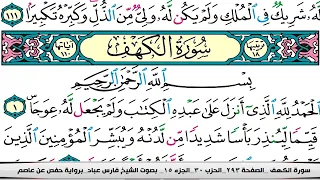 لَّهُۥ شَرِيكٌ فِي ٱلْمُلْكِ وَلَمْ يَكُن لَّهُۥ وَلِيٌّ مِّنَ ٱلذُّلِّ وَكَبِّرْهُ تَكْبِيرًۢا ١١١
ترتيبها ١٨ سُورَةُ الكَهْفِ آياتها ١١٠
بِسْمِ ٱللَّهِ ٱلرَّحْمَٰنِ ٱلرَّحِيمِ
ٱلْحَمْدُ لِلَّهِ ٱلَّذِىٓ أَنزَلَ عَلَىٰ عَبْدِهِ ٱلْكِتَٰبَ وَلَمْ يَجْعَل لَّهُۥ عِوَجَا ١
قَيِّمًا لِّيُنذِرَ بَأْسًا شَدِيدًا مِّن لَّدُنْهُ وَيُبَشِّرَ ٱلْمُؤْمِنِينَ ٱلَّذِينَ
سورة الكهف _الصفحة ٢٩٣_الحزب ٣٠_الجزء ١٥_ بصوت الشيخ فارس عباد_ برواية حفص عن عاصم